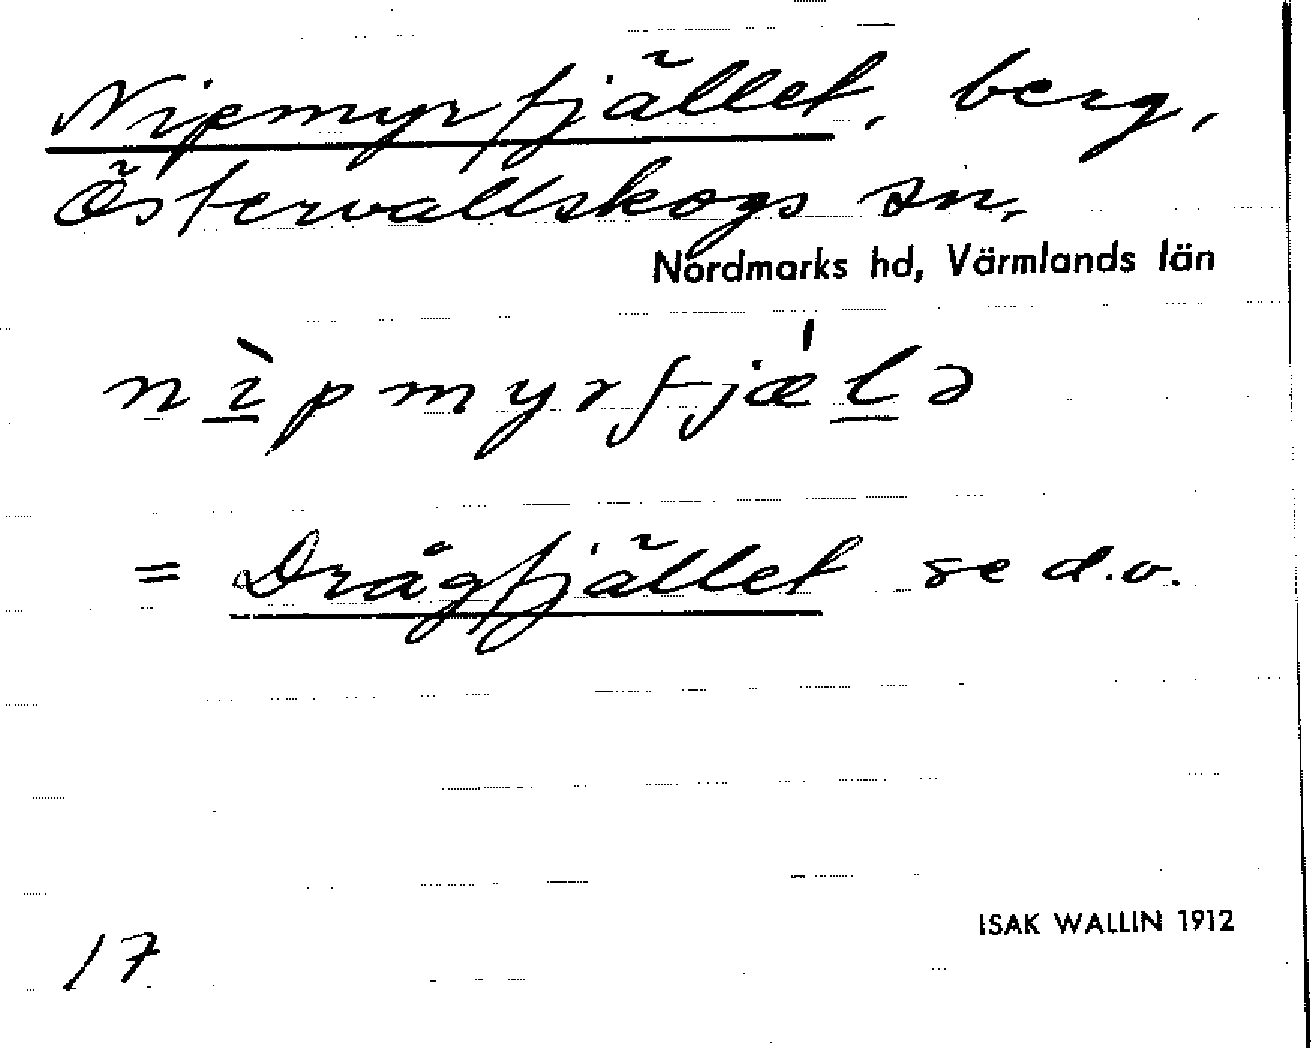 Nipmyrfjället, berg,
Östervallskogs sn.
Nordmarks hd, Värmlands län
nìpmyrfjæ̍lə
= Drågfjället se d.o.
17
ISAK WALLIN 1912